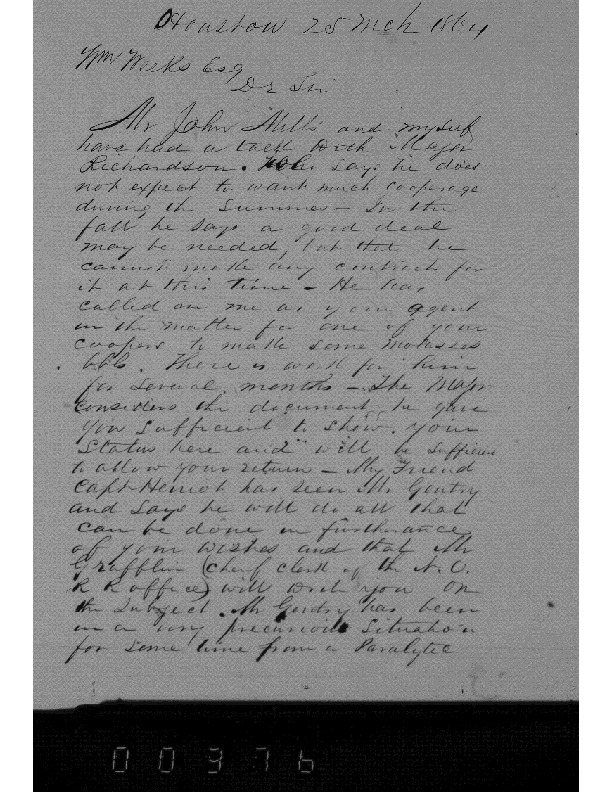 Houston 25 Mch 1864
Wm Weeks Esq
Dr Sir
Mr John Mills and myself
have had a talk with Major
Richardson. He says he does
not expect to want much cooperage
during the Summer – In the
fall he says a good deal
may be needed, but that he
cannot make any contract for
it at this time – He has
called on me as your agent
in the matter for one of your
coopers to make some molasses
bbls. There is work for him
for several months – The Major
considers the document he gave
you sufficient to show your
Status here and will be sufficient
to allow your return – My Friend
Capt has seen Mr Gentry
and says he will do all that
can be done in furtherance
of your wishes and that Mr
(chief clerk of the N. O.
R R office) will write you on
the Subject. Mr Gentry has been
in a very precarious Situation
for some time from a Paralytic
00376